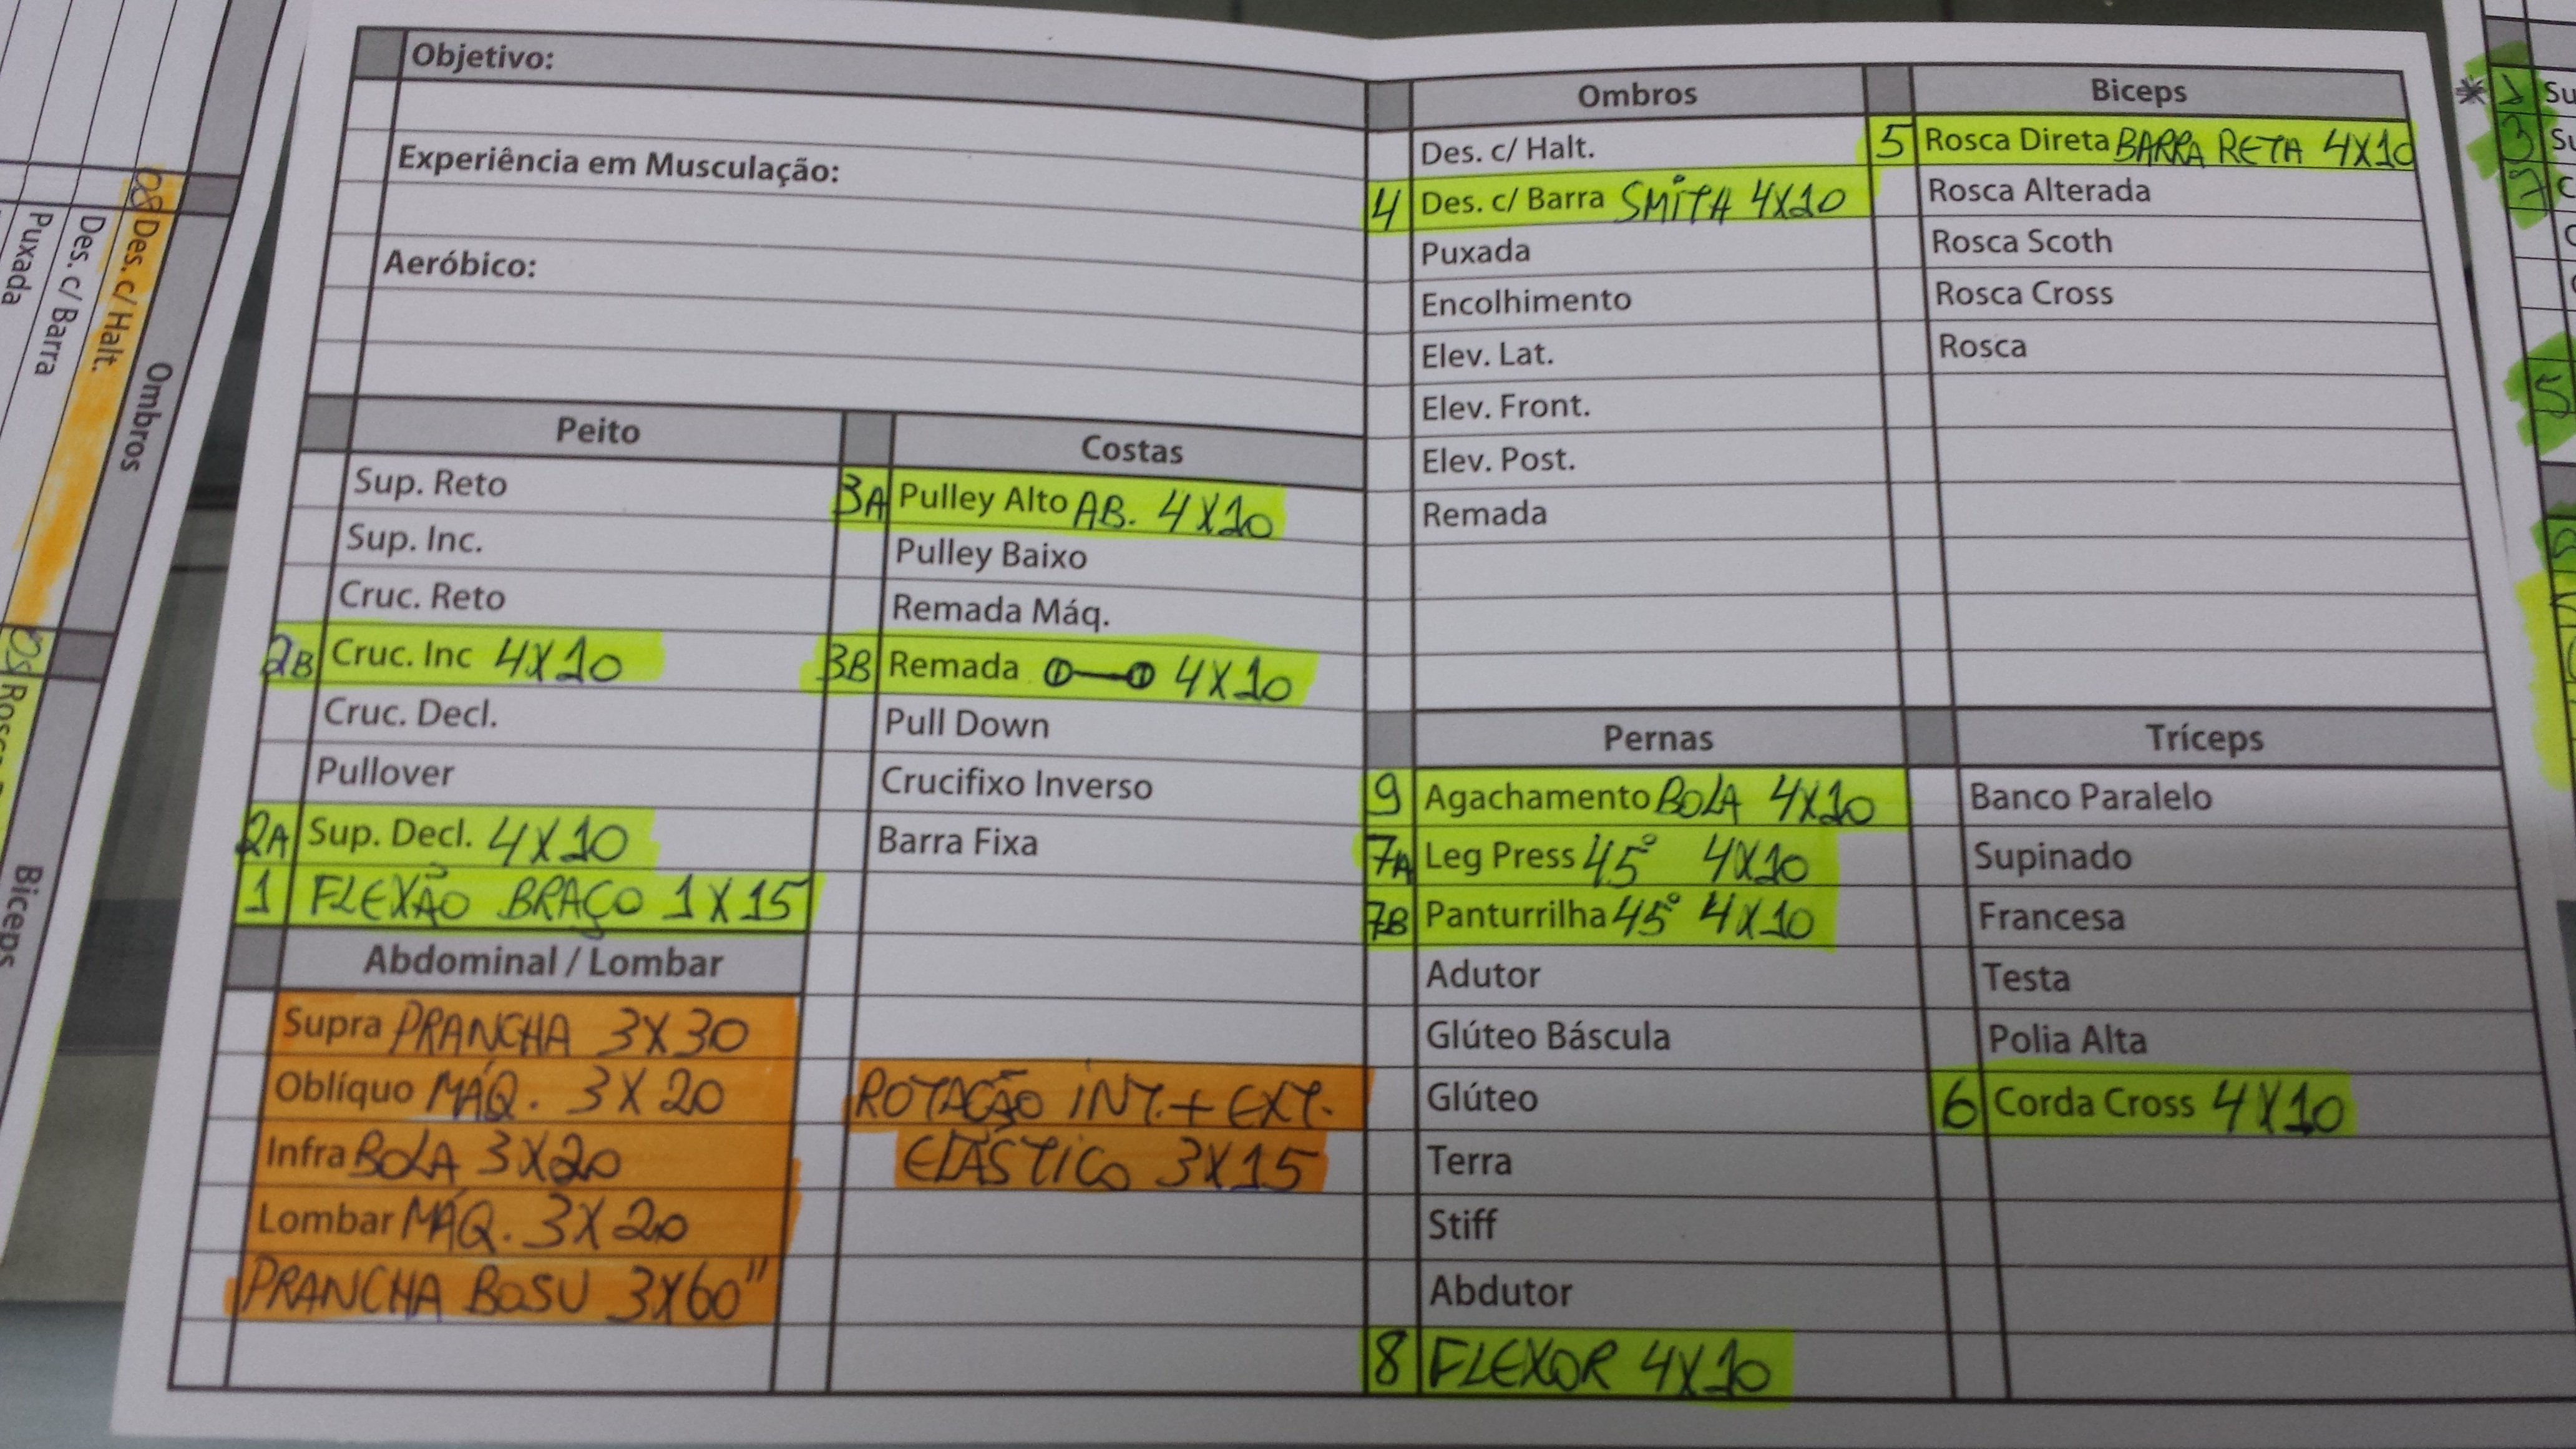 Objetivo:
Experiência em Musculação:
Aeróbico:
Peito
Sup. Reto
Sup. Inc.
Cruc. Reto
2B Cruc. Inc 4X10
Cruc. Decl.
Pullover
2A Sup. Decl. 4X10
1 FLEXÃO BRAÇO 1X15
Abdominal / Lombar
Supra PRANCHA 3X30
Oblíquo MÁQ. 3X20
Infra BOLA 3X20
Lombar MÁQ. 3X20
PRANCHA BOSU 3X60"
Costas
3A Pulley Alto AB. 4X10
Pulley Baixo
Remada Máq.
3B Remada 4X10
Pull Down
Crucifixo Inverso
Barra Fixa
ROTAÇÃO INT.+ EXT.
ELÁSTICO 3X15
Ombros
Des. c/ Halt.
4 Des. c/ Barra SMITH 4X10
Puxada
Encolhimento
Elev. Lat.
Elev. Front.
Elev. Post.
Remada
Biceps
5 Rosca Direta BARRA RETA 4X10
Rosca Alterada
Rosca Scoth
Rosca Cross
Rosca
Pernas
9 Agachamento BOLA 4X10
7A Leg Press 45° 4X10
7B Panturrilha 45° 4X10
Adutor
Glúteo Báscula
Glúteo
Terra
Stiff
Abdutor
8 FLEXOR 4X10
Tríceps
Banco Paralelo
Supinado
Francesa
Testa
Polia Alta
6 Corda Cross 4X10
Ombros
08 Des. c/ Halt.
Des. c/ Barra
Puxada
Biceps